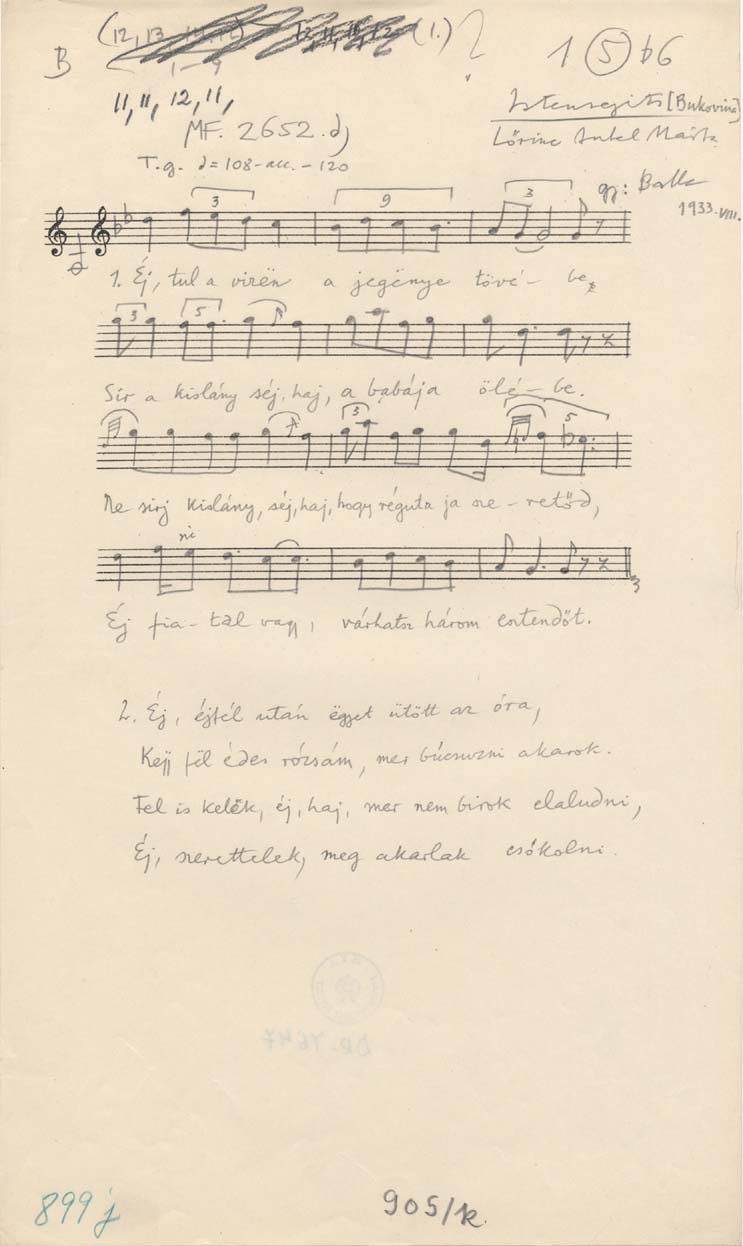 B
(1.) ?
1 5 b6
1-9
11, 11, 12, 11,
Istensegits [Bukovina]
MF. 2652.d)
Lőrinc Antal
T.g. = 108-acc. - 120
gy: Balla
1933. VIII.
3 9 3
1. Éj, tul a vizën a jegënye tövé- be,
3 5
Sir a kislány séj, haj, a babája ölé- be.
3 5
Ne sirj kislány, séj, haj, hogy réguta ja sze- retőd,
Éj fia- tal vagy, várhatsz három esztendőt.
3
2. Éj, éjfél után ëggyet ütött az óra,
Kejj fël édes rózsám, mer búcsuzni akarok.
Fel is kelëk, éj, haj, mer nem birok elaludni,
Éj, szerettelek, meg akarlak csókolni.
899 j
905/k.